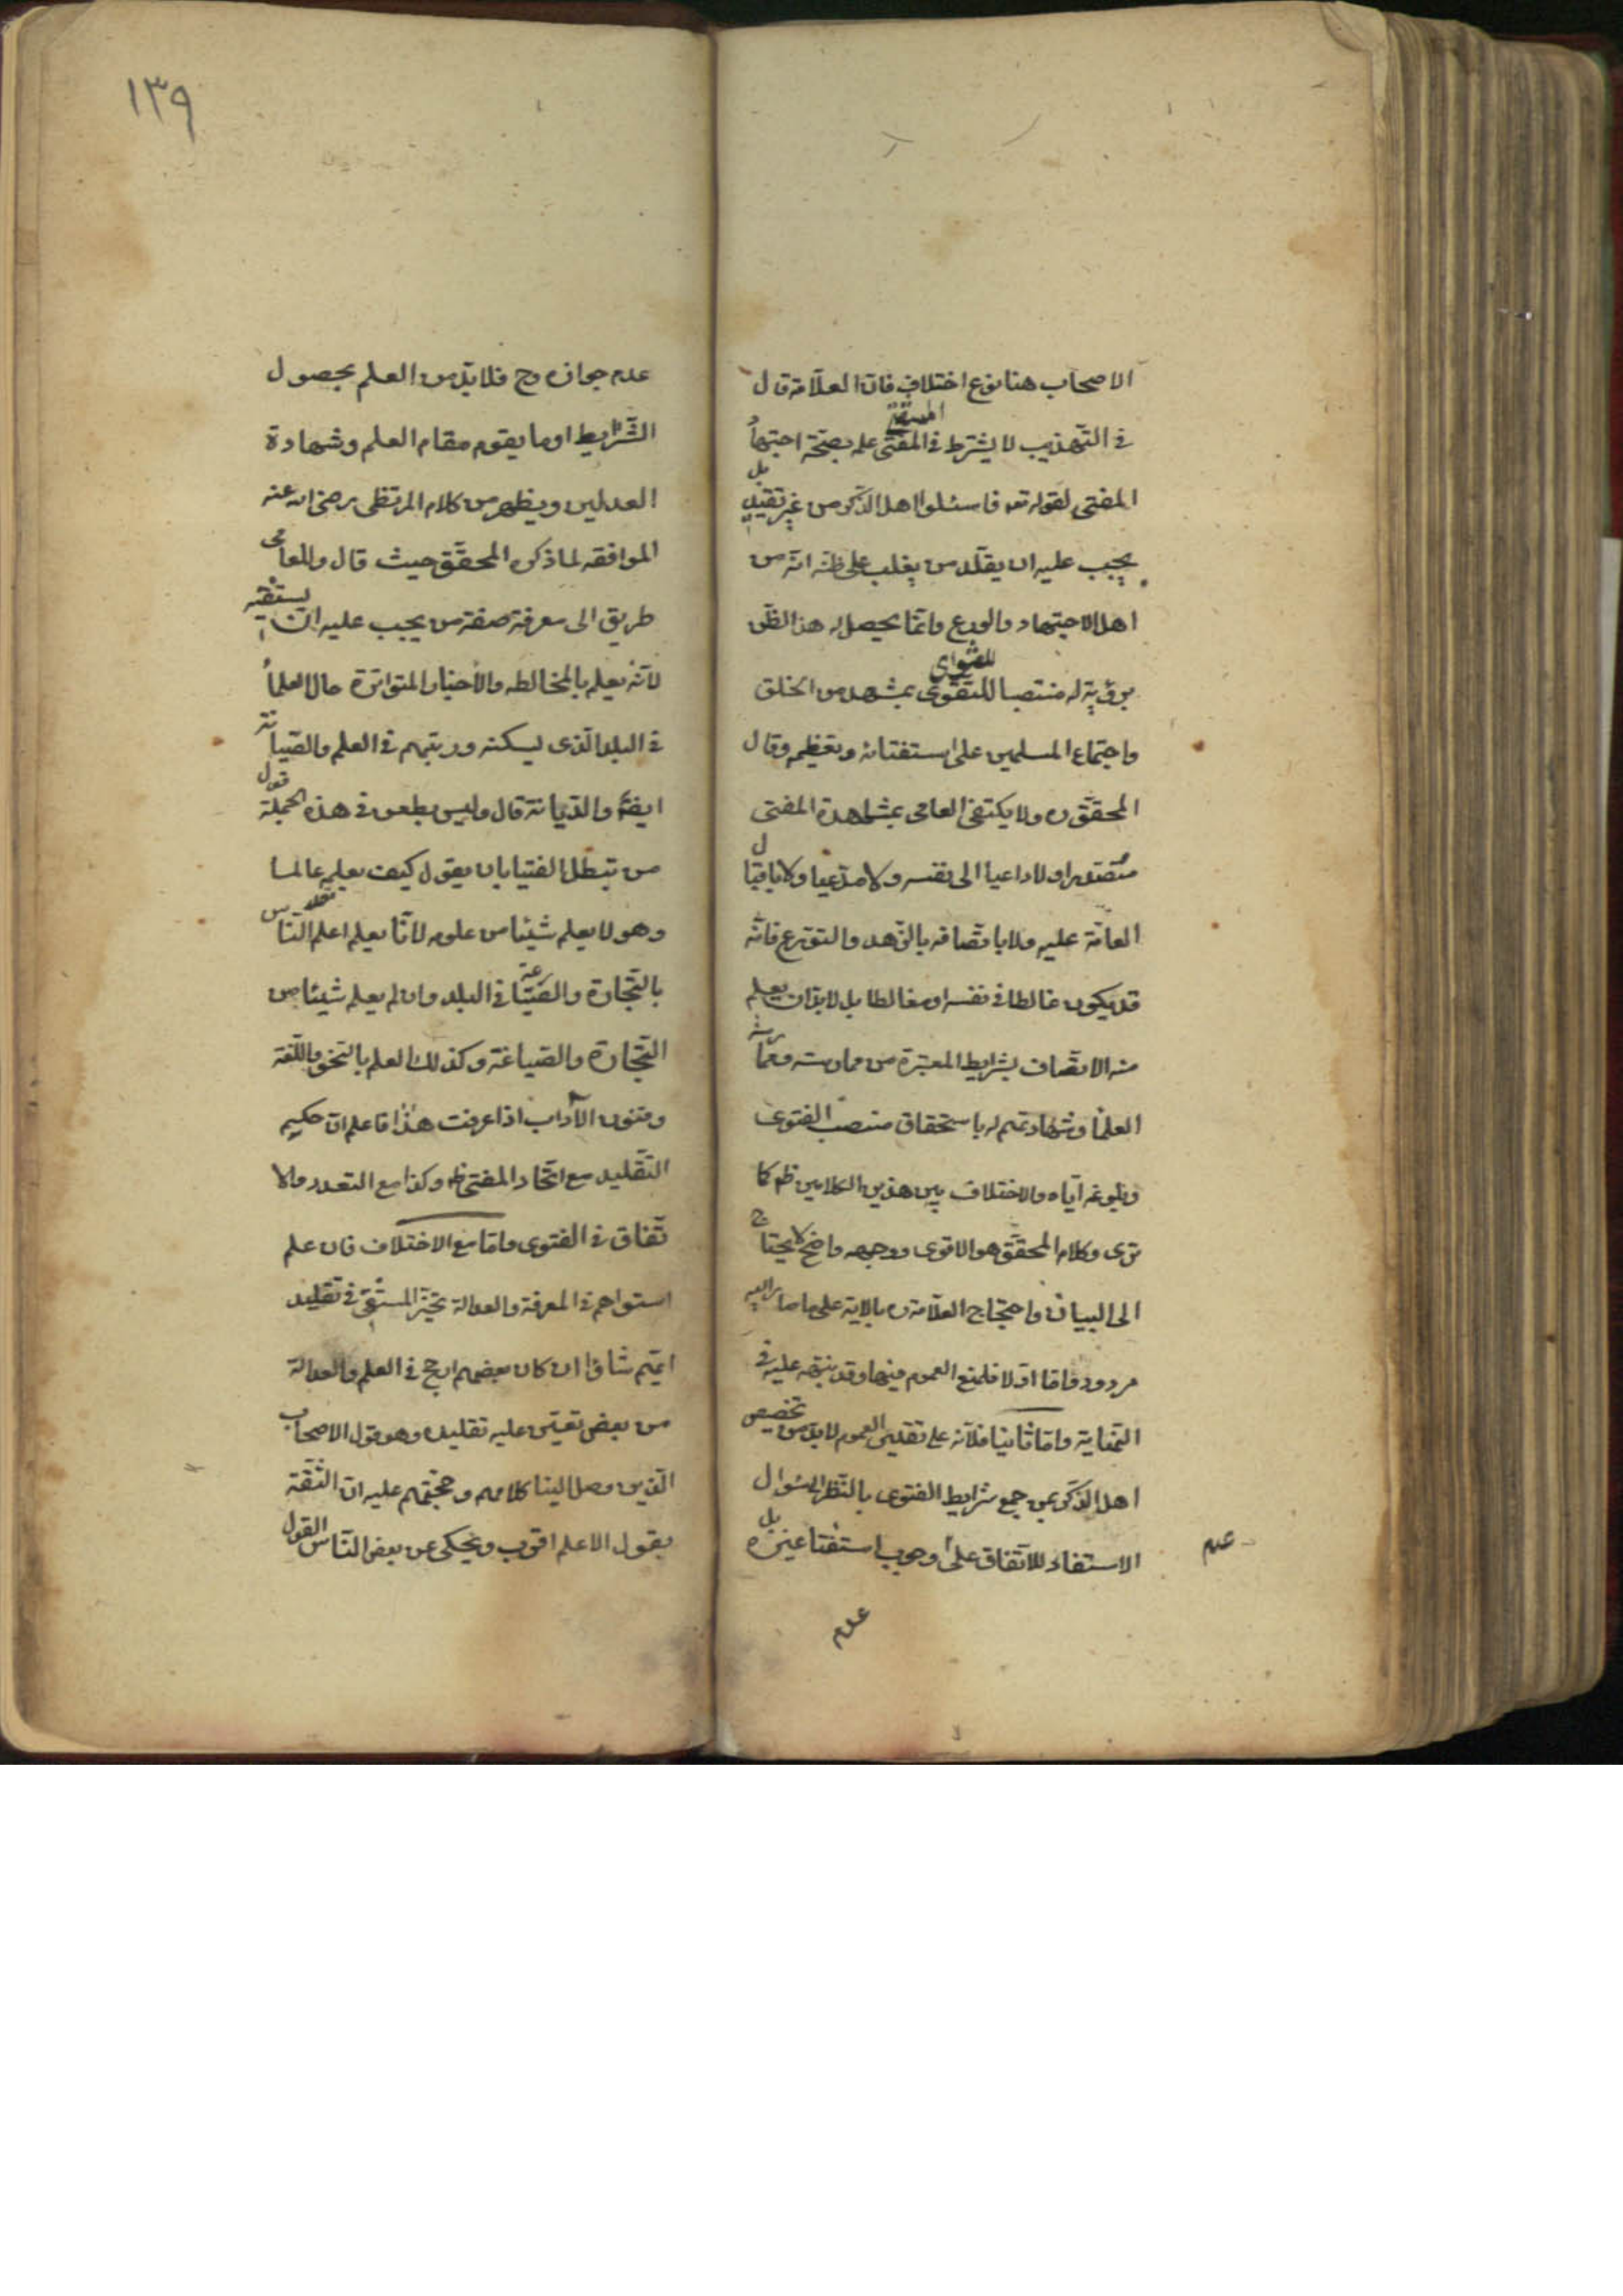 الاصحاب هنا نوع اختلاف فان العلّامة قال
فى التهذيب لا يشترط فى المفتى المستفتى علمه بصحّة اجتهاد
المفتى لقوله تعه فاسئلوا اهل الذكر من غير تقييد بل
يجب عليه ان يقلّد من يغلب على ظنّه انّه من
اهل الاجتهاد والورع وانّما يحصل له هذا الظّن
برؤيته له منتصبا للتقوى للفتوى بمشهد من الخلق
واجتماع المسلمين على استفتائه وتعظيمه وقال
المحقّق ره ولا يكتفى العامى بمشاهدة المفتى
متصدرا ولا داعيا الى نفسه ولا مدّعيا ولا باقبال
العامّة عليه ولا باتّصافه بالزّهد والتورّع فانّه
قد يكون غالطا فى نفسه او مغالطا بل لا بدّ ان يعلم
منه الاتّصاف بشرايط المعتبرة من ممارسته وممارسة
العلمآ وشهادتهم له باستحقاق منصب الفتوى
وبلوغه ايّاه والاختلاف بين هذين الكلامين ظه كما
ترى وكلام المحقّق هو الاقوى ووجهه واضح لا يحتاج
الى البيان واحتجاج العلّامة ره بالاية على ما صار اليه
مردود وامّا اوّلا فلمنع العموم فيها وقد ينبّه عليه فى
النّهاية وامّا ثانيا فلانّه على تقدير العموم لا بدّ من تخصيص
اهل الذّكر بمن جمع شرايط الفتوى بالنّظر الى سؤال
الاستفتاء للاتّفاق على وجوب استفتا غيره بل
عدم
عدم
١٣٩
عدم جوازه وح فلا بدّ من العلم بحصول
الشّرايط او ما يقوم مقام العلم وشهادة
العدلين ويظهر من كلام المرتظى رضى الله عنه
الموافقه لما ذكره المحقّق حيث قال وللعامى
طريق الى معرفة صفة من يجب عليه ان يستفتيه
لانّه يعلم بالمخالطه والاخبار المتواترة حال العلمآ
فى البلد الّذى يسكنه ورتبتهم فى العلم والصّيانة
ايضا والديانة قال وليس يطعن فى هذه الجملة قول
من يبطل الفتيا بان يقول كيف يعلم عالما
وهو لا يعلم شيئا من علومه لانّا نعلم اعلم النّاس
بالتّجارة والصّياغة فى البلد وان لم يعلم شيئا من
التّجارة والصّياغة وكذلك العلم بالنحو واللّغة
وفنون الآداب اذا عرفت هذا فاعلم ان حكيم
التّقليد مع اتّحاد المفتى ظه وكذا مع التعدد والا
تّفاق فى الفتوى وامّا مع الاختلاف فان علم
استواهم فى المعرفة والعدالة تخيّر المستفتى فى تقليد
ايّهم شاؤا ان كان بعضهم ارجح فى العلم والعدالة
من بعض تعيّن عليه تقليده وهو قول الاصحاب
الّذين وصل الينا كلامهم وحجّتهم عليه ان الثّقة
بقول الاعلم اقرب ويحكى عن بعض النّاس القول